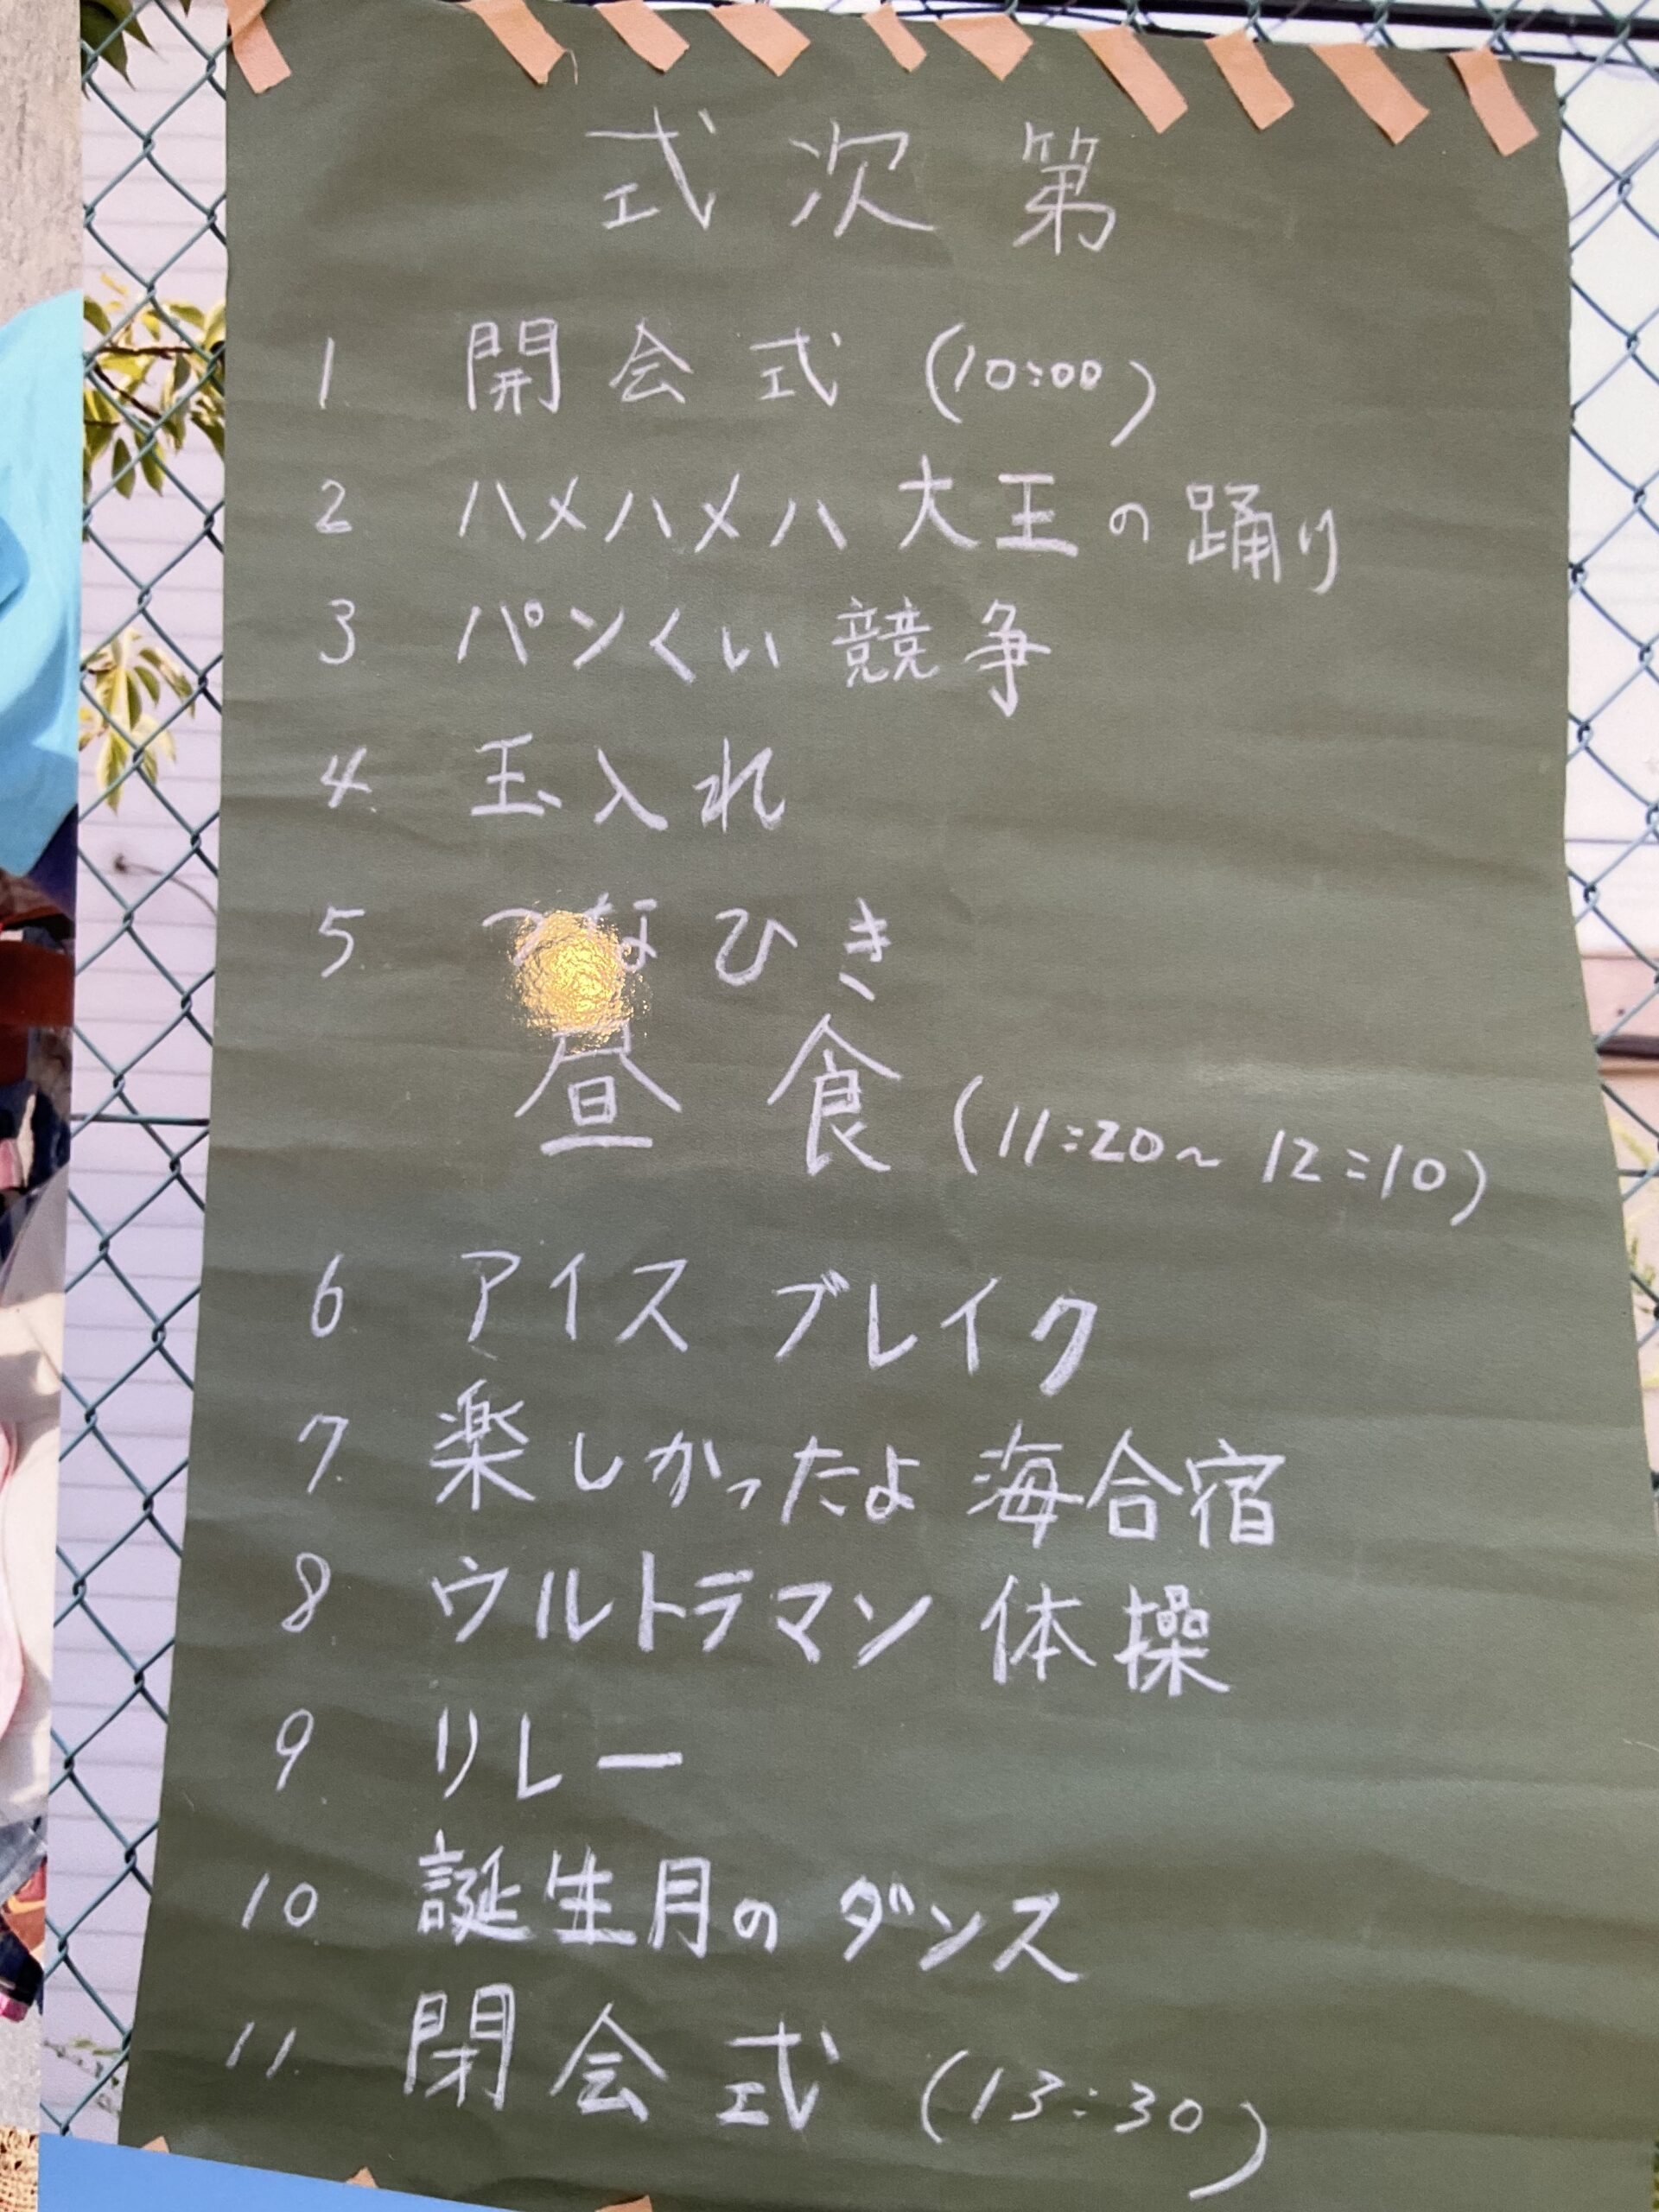 式次第
1 開会式 (10:00)
2 ハメハメハ大王の踊り
3 パンくい競争
4. 玉入れ
5. つなひき
昼食 (11:20~12:10)
6 アイス ブレイク
7. 楽しかったよ 海合宿
8 ウルトラマン 体操
9 リレー
10 誕生月の ダンス
11. 閉会式 (13:30)